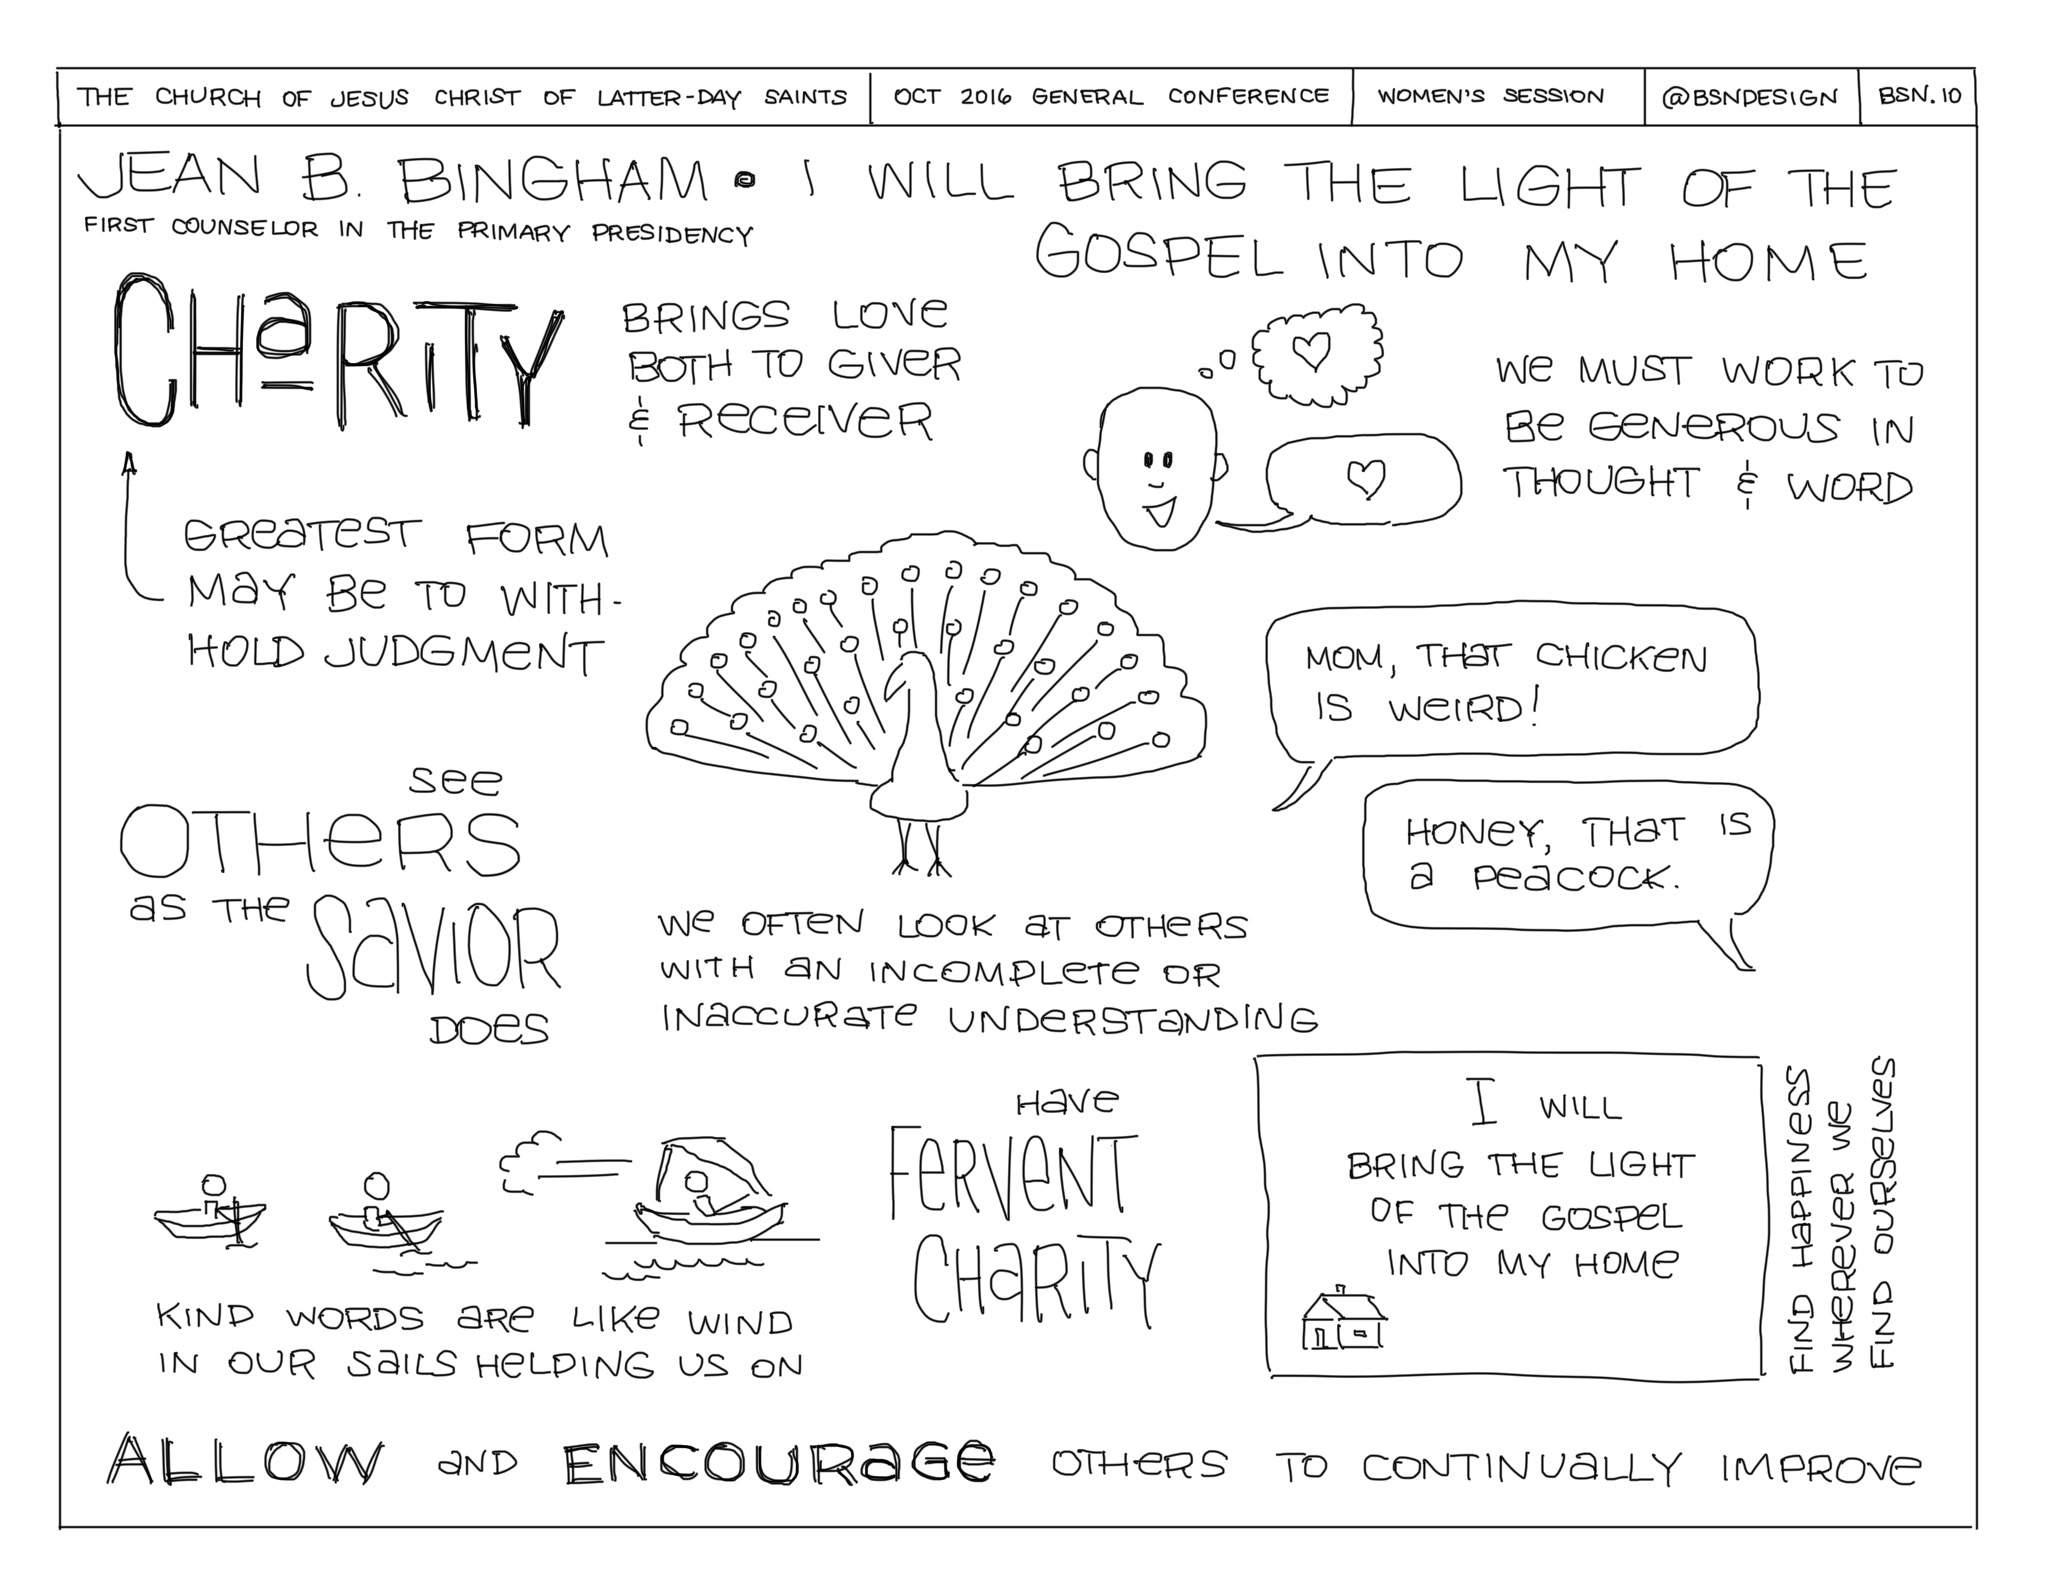 THE CHURCH OF JESUS CHRIST OF LATTER-DAY SAINTS
OCT 2016 GENERAL CONFERENCE
WOMEN'S SESSION
@BSNDESIGN
BSN.10
JEAN B. BINGHAM • I WILL BRING THE LIGHT OF THE
GOSPEL INTO MY HOME
FIRST COUNSELOR IN THE PRIMARY PRESIDENCY
CHaRiTY
BRINGS LOVE
BOTH TO GIVeR
& ReceIVeR
We MUST WORK TO
Be GeNeROUS IN
THOUGHT & WORD
GReaTeST FORM
MaY Be TO WITH-
HOLD JUDGMeNT
MOM, THaT CHICKeN
IS WeIRD!
HONeY, THaT IS
a PeaCOCK.
See
OTHeRS
aS THe
SaVIOR
DOeS
We OFTeN LOOK aT OTHeRS
WITH aN INCOMPLeTe OR
INaCCURaTe UNDeRSTaNDING
KIND WORDS aRe LIKe WIND
IN OUR SaILS HeLPING US ON
HaVe
FeRVeNT
CHaRiTY
I WILL
BRING THe LIGHT
OF THe GOSPeL
INTO MY HOMe
FIND HaPPINeSS
WHeReVeR We
FIND OURSeLVeS
ALLOW aND ENCOURaGe OTHeRS TO CONTINUaLLY IMPROVe